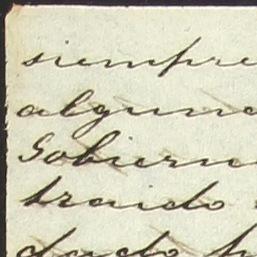 siempre
alguno
Gobierno
traido
dado